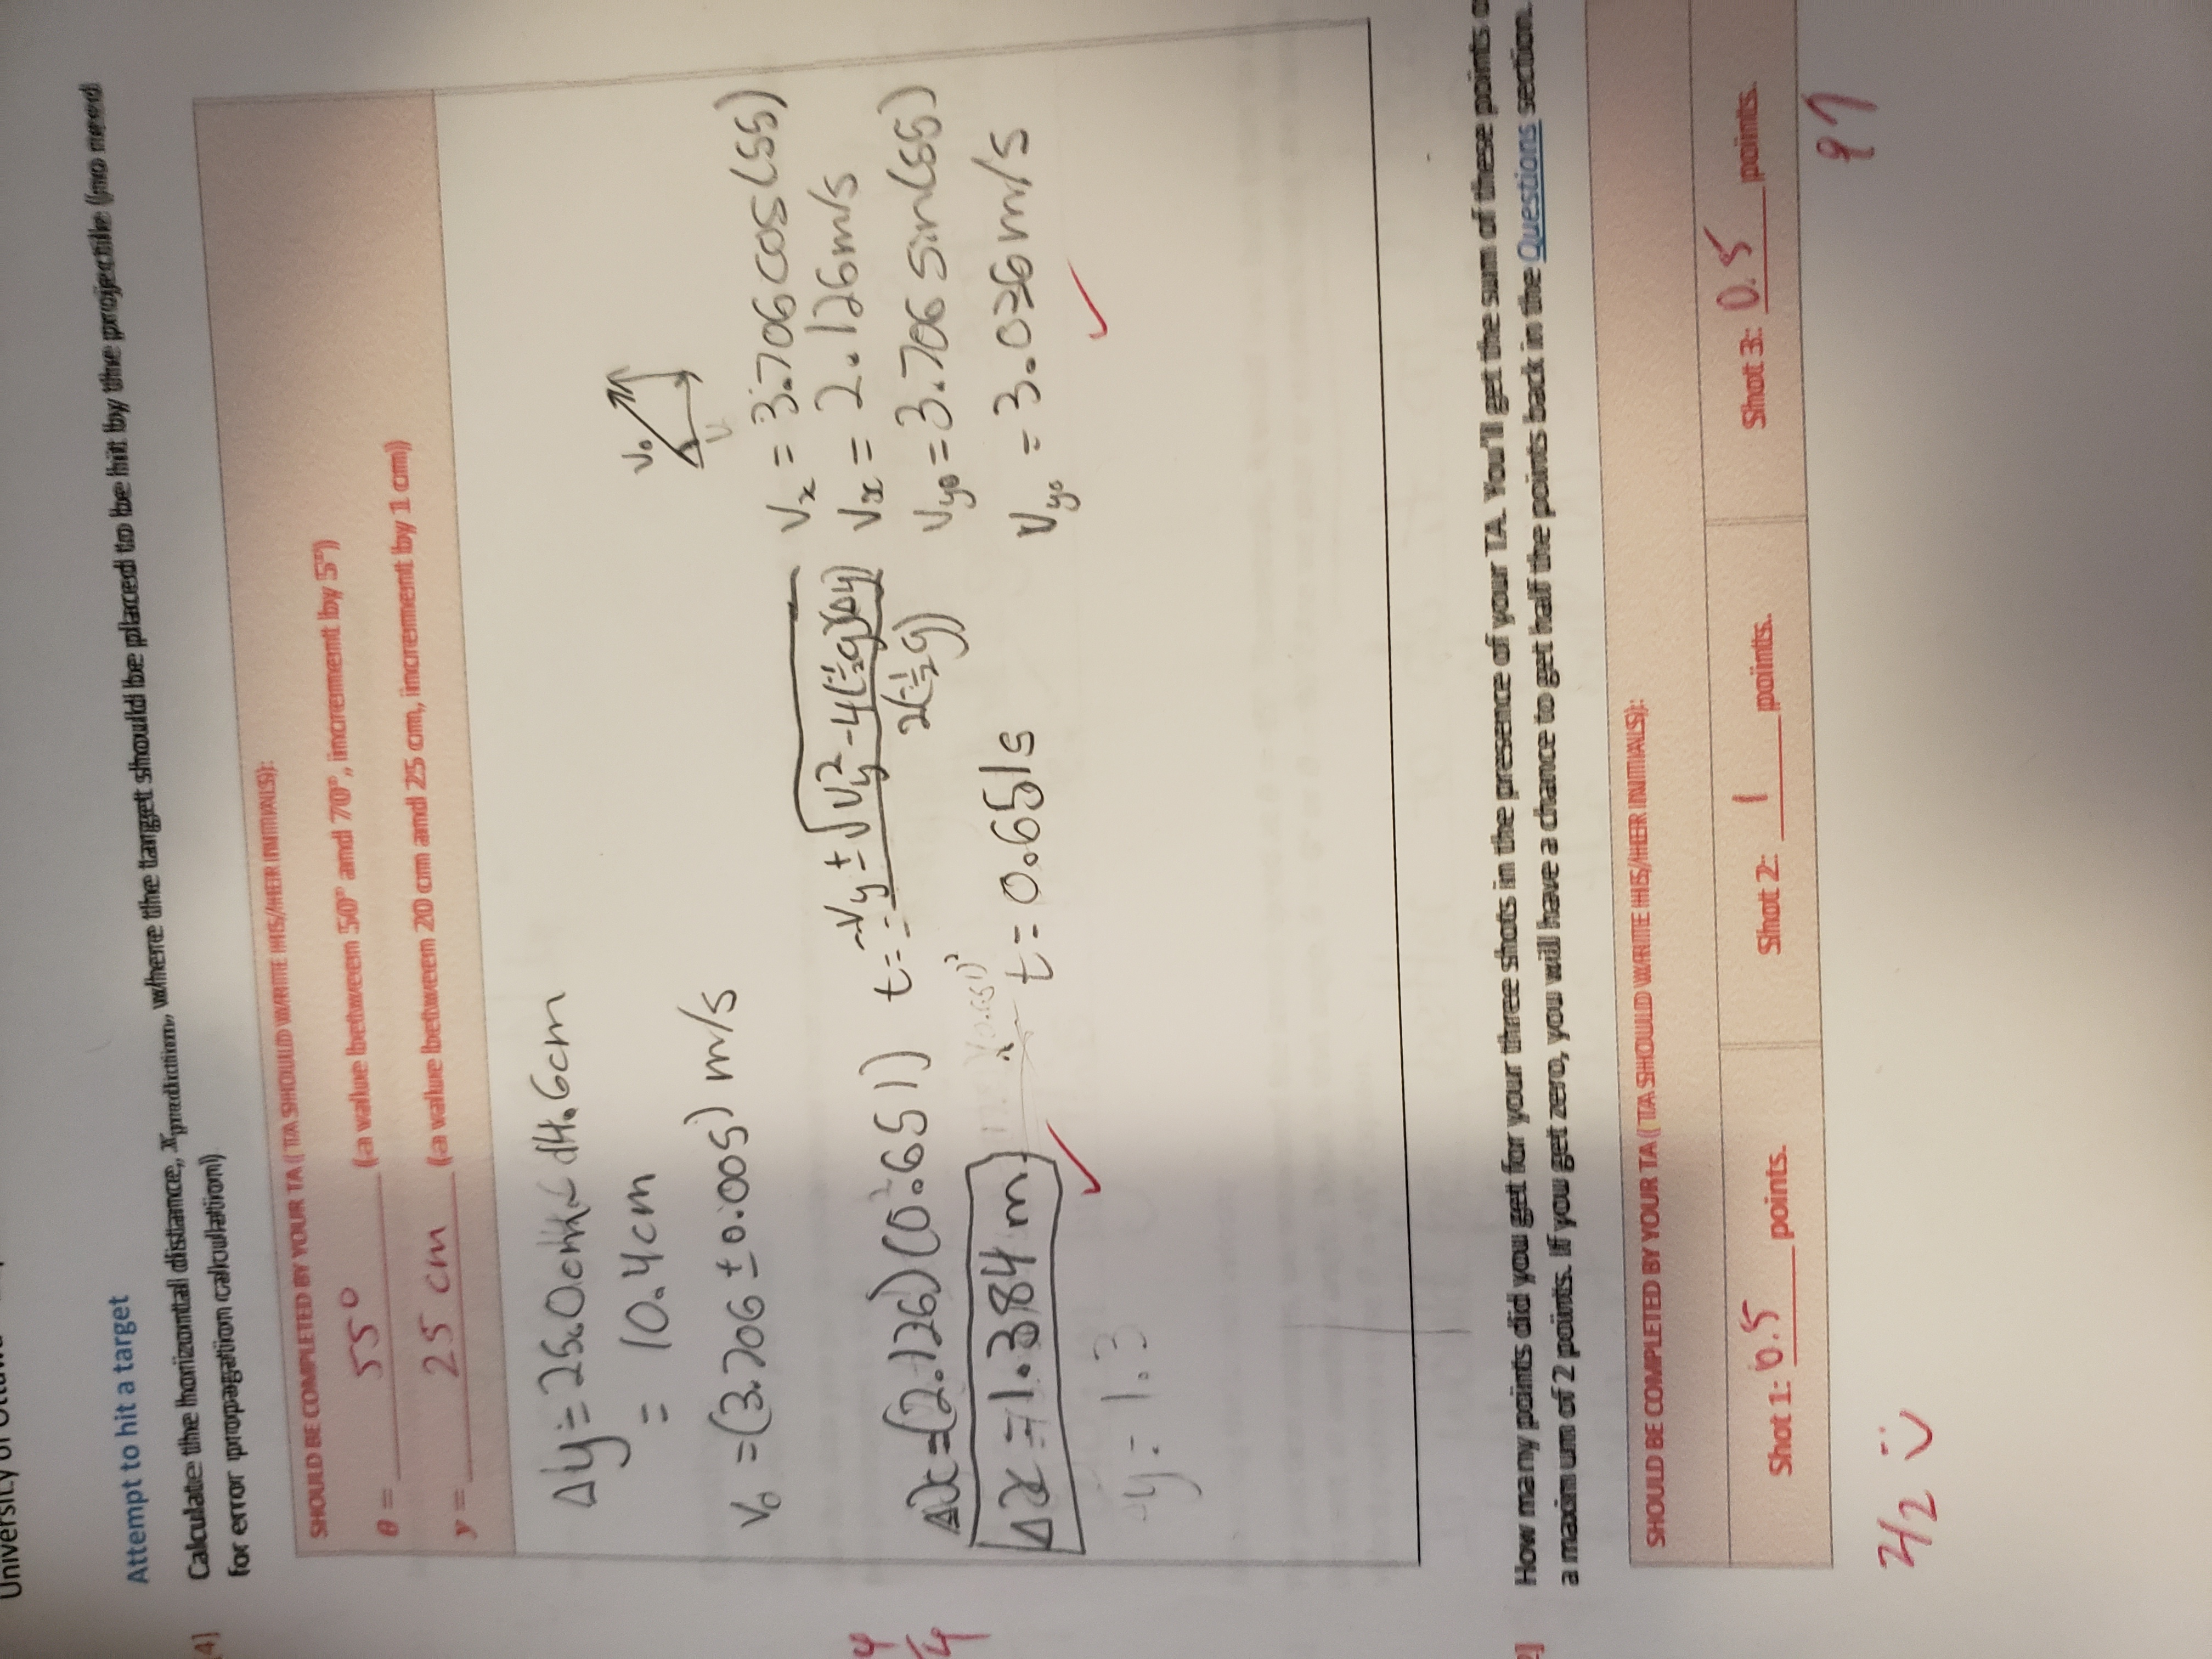 University of
Attempt to hit a target
[4] Calculate the horizontal distance, x_prediction, where the target should be placed to be hit by the projectile (no need
for error propagation calculation)
SHOULD BE COMPLETED BY YOUR TA (TA SHOULD WRITE HIS/HER INITIALS):
θ = 55° (a value between 50° and 70°, increment by 5°)
y = 25 cm (a value between 20 cm and 25 cm, increment by 1 cm)
Δy = 25.0cm 14.6cm
= 10.4cm
V₀
V₀ = (3.706 ± 0.005) m/s
Vₓ = 3.706 cos(55)
Vₓ = 2.126 m/s
t = -Vy ± √Vy² - 4(-½g)(Δy)
2(-½g)
Vy₀ = 3.706 sin(55)
Δx = (2.126)(0.651)
t = 0.651s
Vy₀ = 3.036 m/s
Δx = 1.384 m
y = 1.3
4/4
How many points did you get for your three shots in the presence of your TA. You'll get the sum of these points
a maximum of 2 points. If you get zero, you will have a chance to get half the points back in the Questions section.
SHOULD BE COMPLETED BY YOUR TA (TA SHOULD WRITE HIS/HER INITIALS):
Shot 1: 0.5 points. Shot 2: 1 points. Shot 3: 0.5 points.
2/2